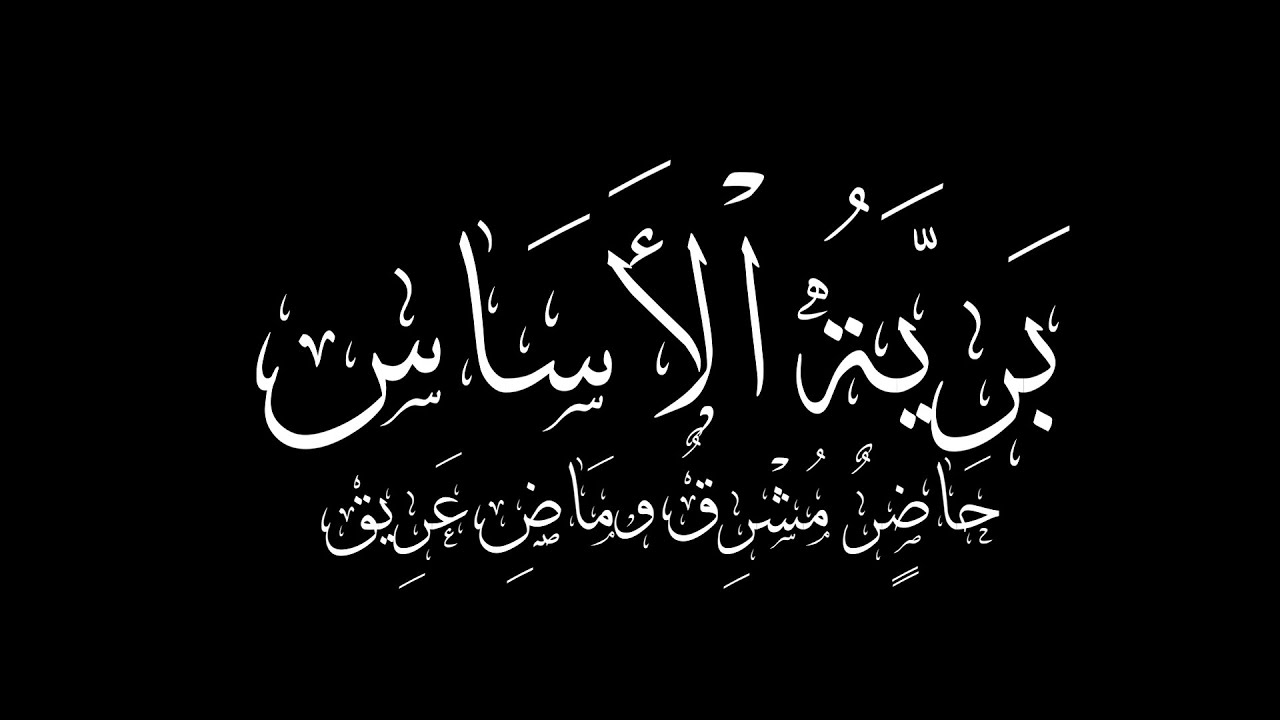 بَرِيَّةُ الْأَسَاس
حَاضٍرٌ مُشْرِقٌ ومَاضِ عَرِيق